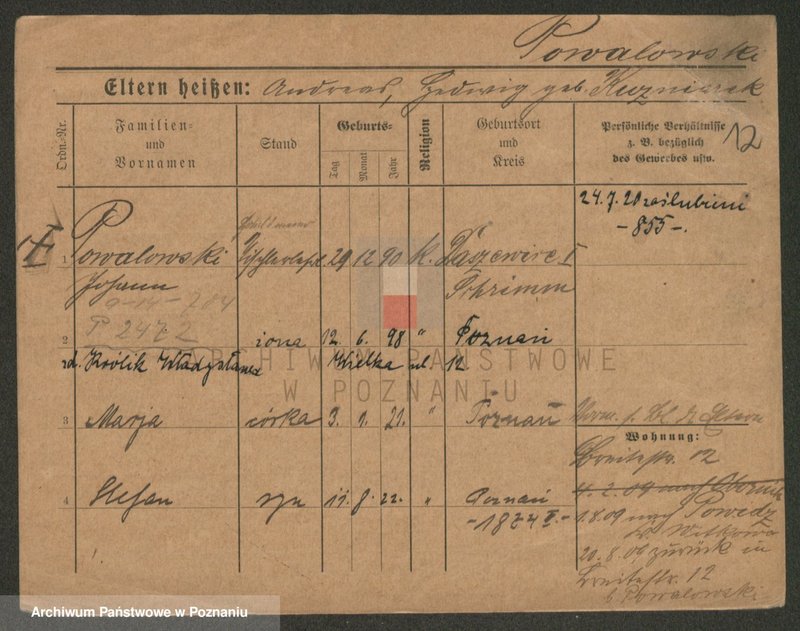 Powalowski
Eltern heißen: Andreas, Hedwig geb. Kuzniarek
Ordn.-Nr.
Familien-
und
Vornamen
Stand
Geburts-
Tag
Monat
Jahr
Religion
Geburtsort
und
Kreis
Persönliche Verhältnisse
z. B. bezüglich
des Gewerbes usw.
12
24.7.20 zaślubieni
-855-.
1 Powalowski 29 12 90 K.
Johann Schrimm
P 2472
2 żona 12. 6. 98 " Poznań
zd. Królik Władysława Wielka ul 12
3 Marja córka 3. 1. 21. " Poznań
Wohnung:
Breitestr. 12
4 Stefan syn 11. 8. 22. " Poznań
4.2.09 nach Obornik
1.8.09 nach Powidz
Witkowo
20.8.09 zurück in
Breitestr. 12
b. Powalowski
ARCHIWUM PAŃSTWOWE
W POZNANIU
Archiwum Państwowe w Poznaniu